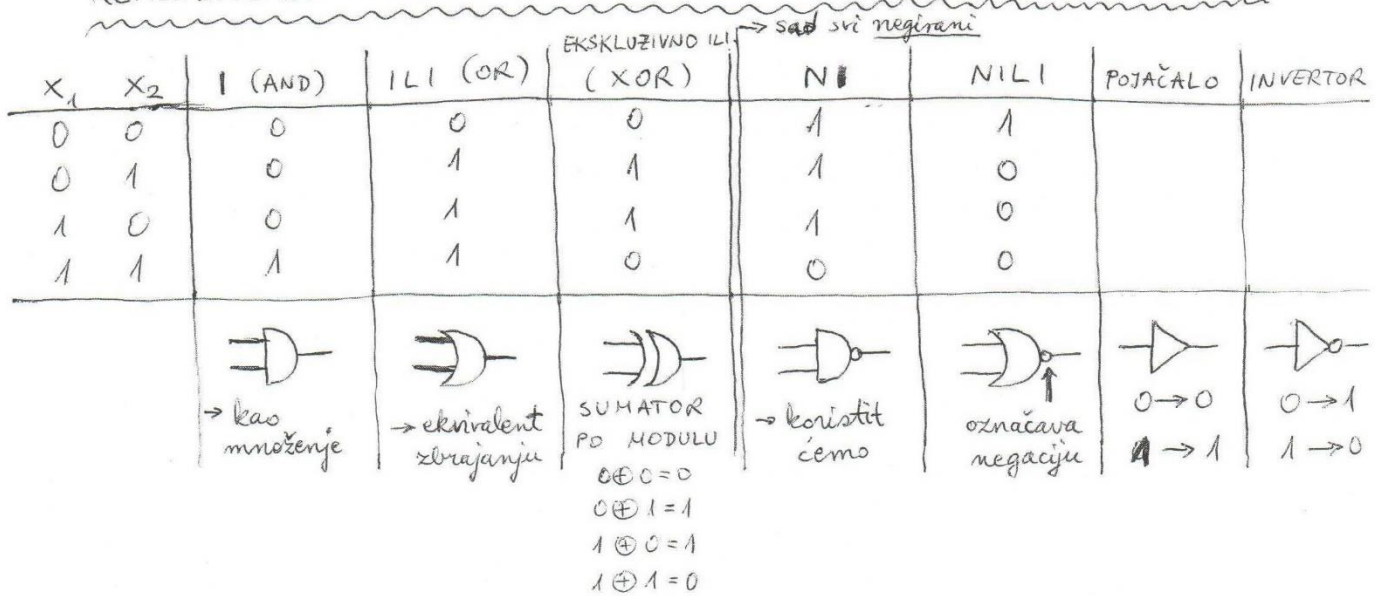 → sad svi negirani
X₁ X₂ I (AND) ILI (OR) EKSKLUZIVNO ILI (XOR) NI NILI POJAČALO INVERTOR
0 0 0 0 0 1 1
0 1 0 1 1 1 0
1 0 0 1 1 1 0
1 1 1 1 0 0 0
→ kao množenje
→ ekvivalent zbrajanju
SUMATOR PO MODULU
0⊕0=0
0⊕1=1
1⊕0=1
1⊕1=0
→ koristit ćemo
označava negaciju
0→0
1→1
0→1
1→0